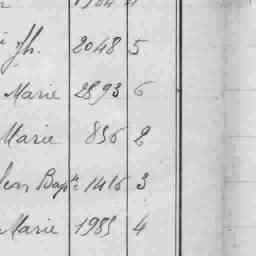 Jh. 2048 5
Marie 2893 6
Marie 836 2
Jean Bapt. 1416 3
Marie 1985 4